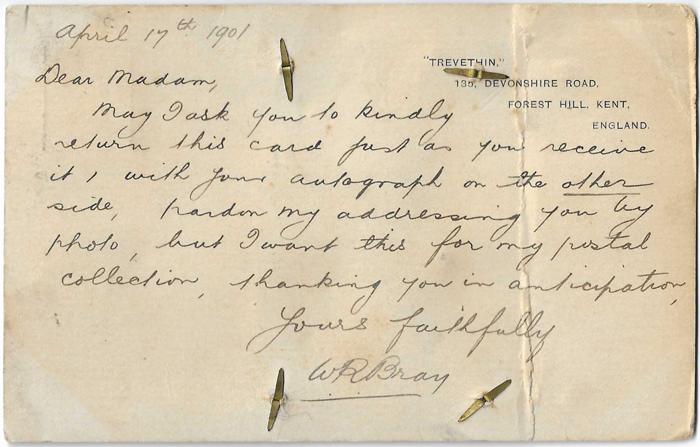 April 17th 1901
"TREVETHIN,"
135, DEVONSHIRE ROAD,
FOREST HILL, KENT,
ENGLAND.
Dear Madam,
May I ask you to kindly
return this card just as you receive
it, with your autograph on the other
side, pardon my addressing you by
photo, but I want this for my postal
collection, thanking you in anticipation,
Yours faithfully
W R Bray